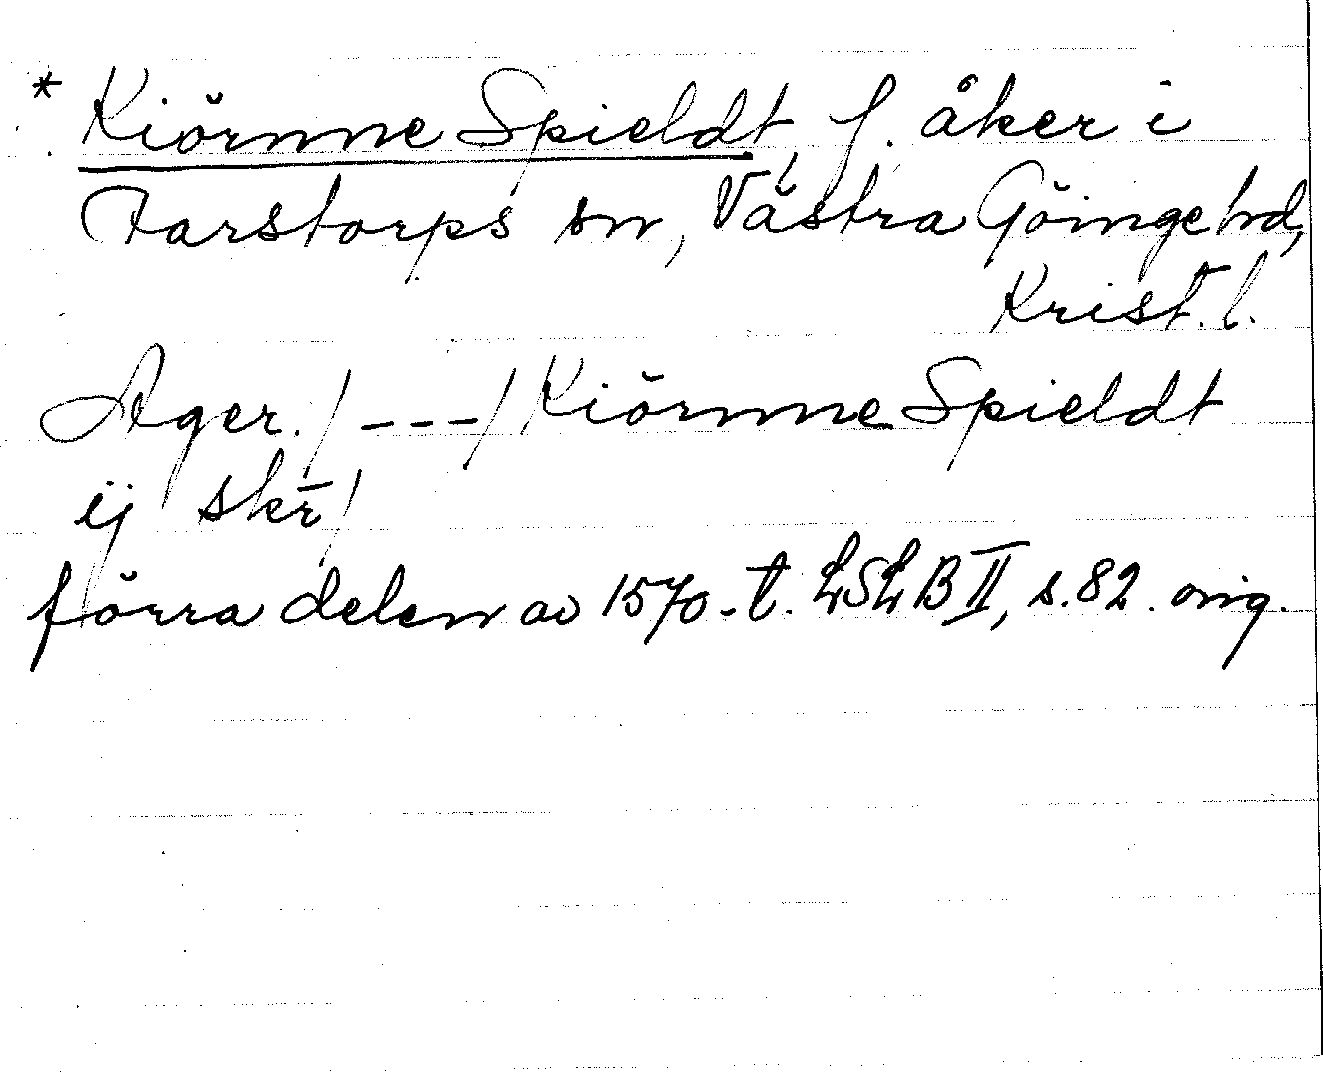 * Kiörnne Spieldt, f. åker i
Farstorps sn, Västra Göinge hd,
Krist. l.
Ager. / - - - / Kiörnne Spieldt
ij skr̄ /
förra delen av 1570-t. LSLB II, s. 82. orig.